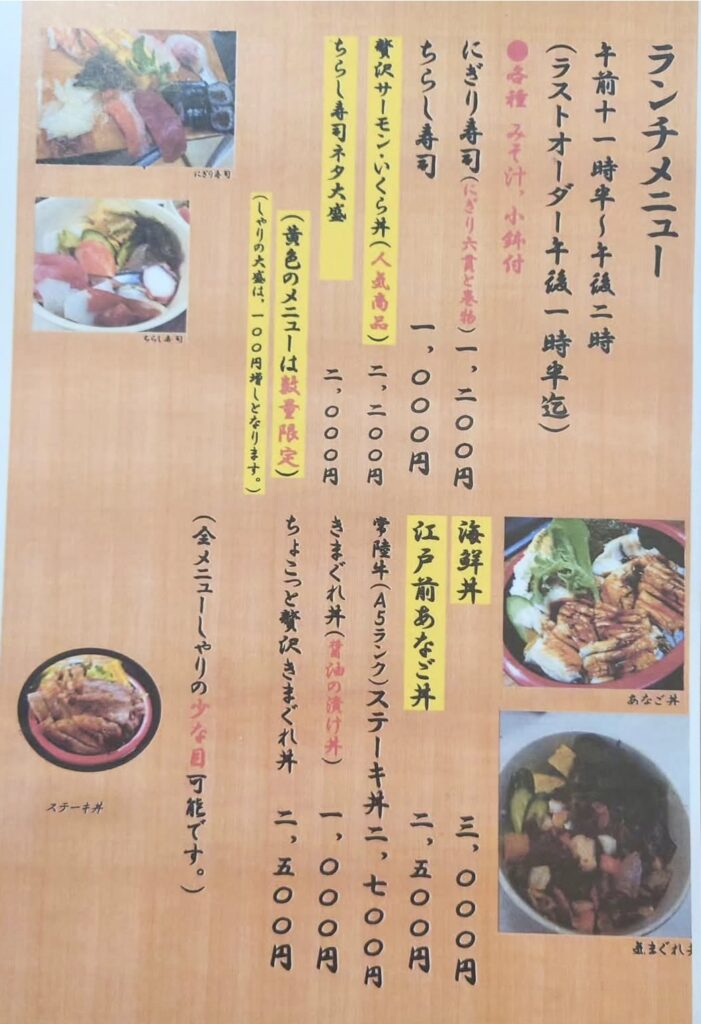 ランチメニュー
午前十一時半～午後二時
(ラストオーダー午後一時半迄)
●各種 みそ汁,小鉢付
にぎり寿司(にぎり六貫と巻物)一,二〇〇円
ちらし寿司 一,〇〇〇円
贅沢サーモン・いくら丼(人気商品) 二,二〇〇円
ちらし寿司ネタ大盛 二,〇〇〇円
(黄色のメニューは数量限定)
(しゃりの大盛は、一〇〇円増しとなります。)
にぎり寿司
ちらし寿司
海鮮丼 三,〇〇〇円
江戸前あなご丼 二,五〇〇円
常陸牛(A5ランク)ステーキ丼 二,七〇〇円
きまぐれ丼(醤油の漬け丼) 一,〇〇〇円
ちょこっと贅沢きまぐれ丼 二,五〇〇円
(全メニューしゃりの少な目可能です。)
あなご丼
気まぐれ丼
ステーキ丼